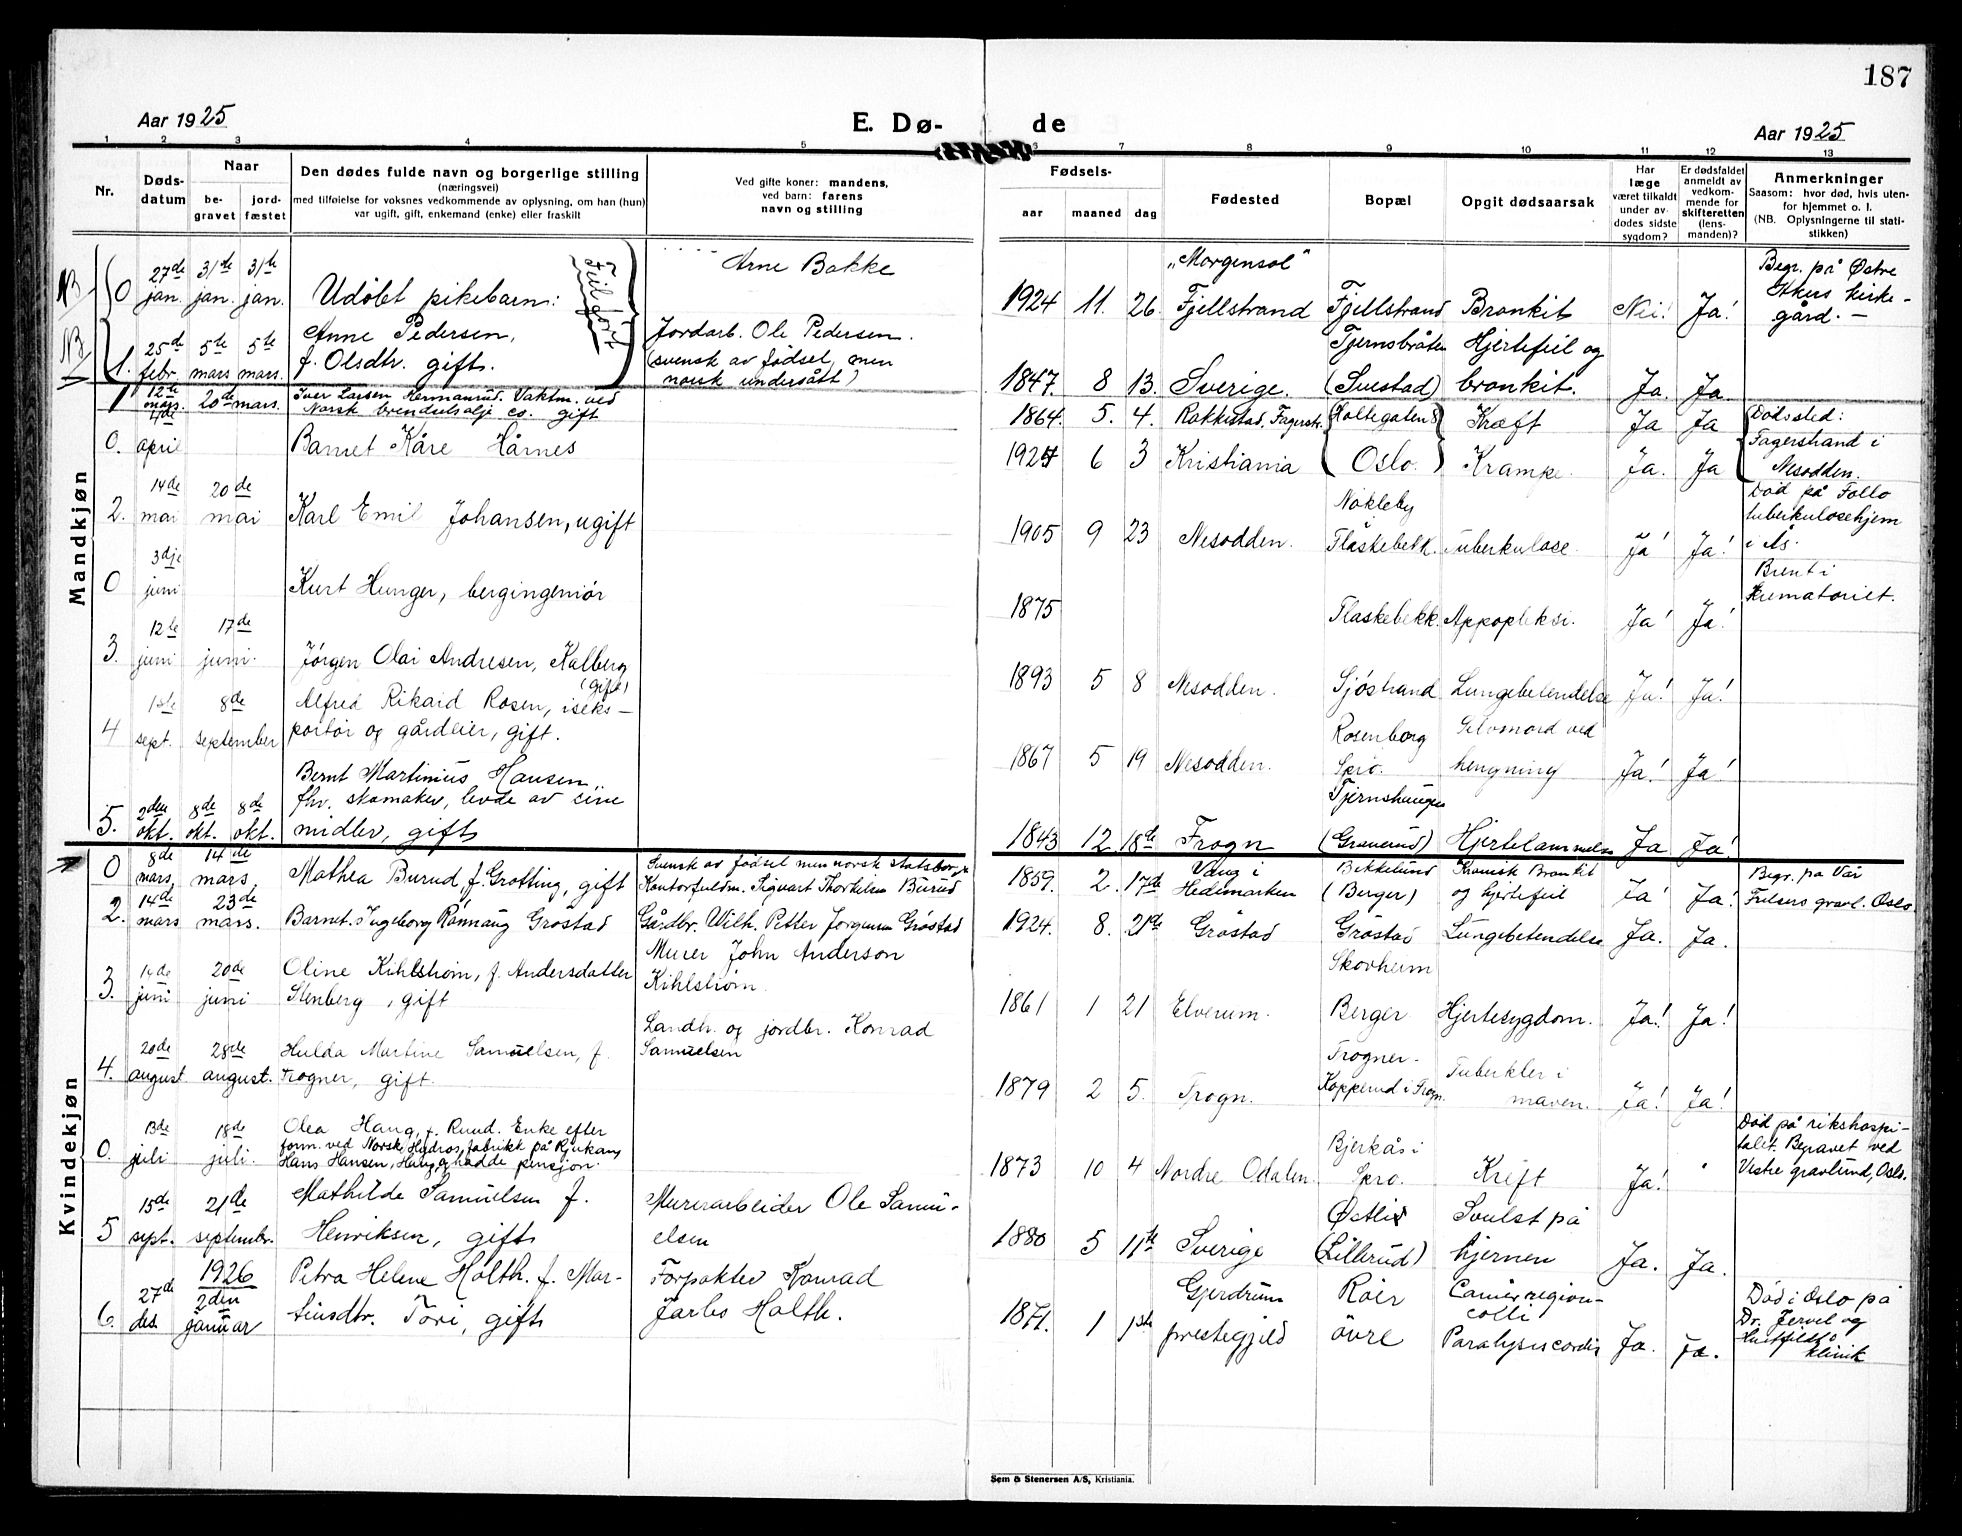 187
Aar 1925
E. Dø-
de
Aar 1925
1 2 3 4 5 6 7 8 9 10 11 12 13
Nr.
Døds-
datum
Naar
be-
gravet
jord-
fæstet
Den dødes fulde navn og borgerlige stilling
(næringsvei)
med tilføielse for voksnes vedkommende av oplysning, om han (hun)
var ugift, gift, enkemand (enke) eller fraskilt
Ved gifte koner: mandens,
ved barn: farens
navn og stilling
Fødsels-
aar
maaned
dag
Fødested
Bopæl
Opgit dødsaarsak
Har
læge
været tilkaldt
under av-
dødes sidste
sygdom?
Er dødsfaldet
anmeldt av
vedkom-
mende for
skifteretten
(lens-
manden)?
Anmerkninger
Saasom: hvor død, hvis uten-
for hjemmet o. l.
(NB. Oplysningerne til stati-
stikken)
Mandkjøn
NB 0 27de jan. 31te jan. 31te jan. Udøbt pikebarn: Feilført Arne Bakke 1924 11. 26. "Morgensol" Fjellstrand Fjellstrand Bronkit Nei! Ja! Begr. på Østre
Akers kirke-
gård. —
NB 1. 25de febr. 5te mars 5te mars. Anne Pedersen,
f. Olsdtr. gift. Jordarb. Ole Pedersen.
(svensk av fødsel, men
norsk undersått) 1847. 8 13. Sverige. Tjernsbråten
(Svestad) Hjertefeil og
bronkit. Ja. Ja.
1 12te mars. 20de mars. Iver Larsen Hermansrud. Vaktm. ved
Norsk brendselolje co. gift 1864. 5. 4. Rakkestad, Fagerstr. Holtegaten 8 Kræft Ja Ja Dødssted:
Fagerstrand i
Nesodden.
0. 4de april Barnet Kåre Hårnes 1924 6 3 Kristiania Oslo. Krampe. Ja. Ja
2. 14de mai 20de mai Karl Emil Johansen, ugift 1905 9 23 Nesodden. Nøkleby
Flaskebekk. Tuberkulose. Ja! Ja! Død på Follo
tuberkulosehjem
i Ås.
0 3dje juni Kurt Hunger, bergingeniør 1875 Flaskebekk. Appopleksi. Ja! Ja! Brent i
Krematoriet.
3. 12te juni 17de juni. Jørgen Olai Andresen, Kalberg
(gift) 1893 5 8 Nesodden. Sjøstrand Lungebetendelse Ja! Ja!
4 1ste sept. 8de september Alfred Rikard Rosen, iseks-
portør og gårdeier, gift. 1867 5 19 Nesodden. Rosenborg
Spro. Selvmord ved
hengning Ja! Ja!
5. 2den okt. 8de okt. 8de okt. Bernt Martinius Hansen
fhv. skomaker, levde av sine
midler, gift 1843 12. 18de Frogn Tjernshaugen
(Granerud) Hjertelammelse Ja Ja!
Kvindekjøn
0 8de mars, 14de mars, Mathea Burud, f. Grøtting, gift Svensk av fødsel men norsk statsborger
Kontorfuldm. Siguart Thorkelsen Burud 1859. 2. 17de Vang i
Hedemarken Bekkelund
(Berger) Kronisk Bronkit
og hjertefeil Ja! Ja! Begr. på Vår
Frelsers gravl. Oslo
2. 14de mars 23de mars. Barnet Ingeborg Rannaug Grøstad Gårdbr. Wilh. Petter Jørgensen Grøstad 1924. 8. 21de Grøstad Grøstad Lungebetendelse Ja. Ja.
3. 14de juni 20de juni Oline Kihlstrøm, f. Andersdatter
Stenberg, gift Murer John Anderson
Kihlstrøm. 1861 1 21 Elverum. Skovheim
Berger Hjertesygdom. Ja! Ja!
4. 20de august 28de august. Hulda Martine Samuelsen, f.
Frogner, gift. Landh. og jordbr. Konrad
Samuelsen 1879 2 5. Frogn. Frogner.
Kopperud i Frogn. Tuberkler i
maven. Ja! Ja!
0. 13de juli 18de juli. Olea Haug, f. Ruud. Enke efter
form. ved Norsk Hydros fabrikk på Rjukan,
Hans Hansen, Haug, hadde pensjon. 1873 10 4 Nordre Odalen Bjerkås i
Spro. Kreft Ja! " Død på rikshospi-
talet. Begravet ved
Vestre gravlund, Oslo.
5 15de sept. 21de september. Mathilde Samuelsen f.
Henriksen, gift Murerarbeider Ole Samu-
elsen 1880 5 11te Sverige Østli
(Lillerud) Svulst på
hjernen Ja. Ja.
6. 27de des. 1926 2den januar Petra Helene Holth. f. Mar-
tinsdtr. Tori, gift Forpakter Konrad
Jarbo Holth. 1871. 1 1ste Gjerdrum
prestegjeld Roer
øvre Cancer region-
colli
Paralysis cordis Ja. Ja. Død i Oslo på
Dr. Jervel og
klinik
Sem & Stenersen A/S, Kristiania.